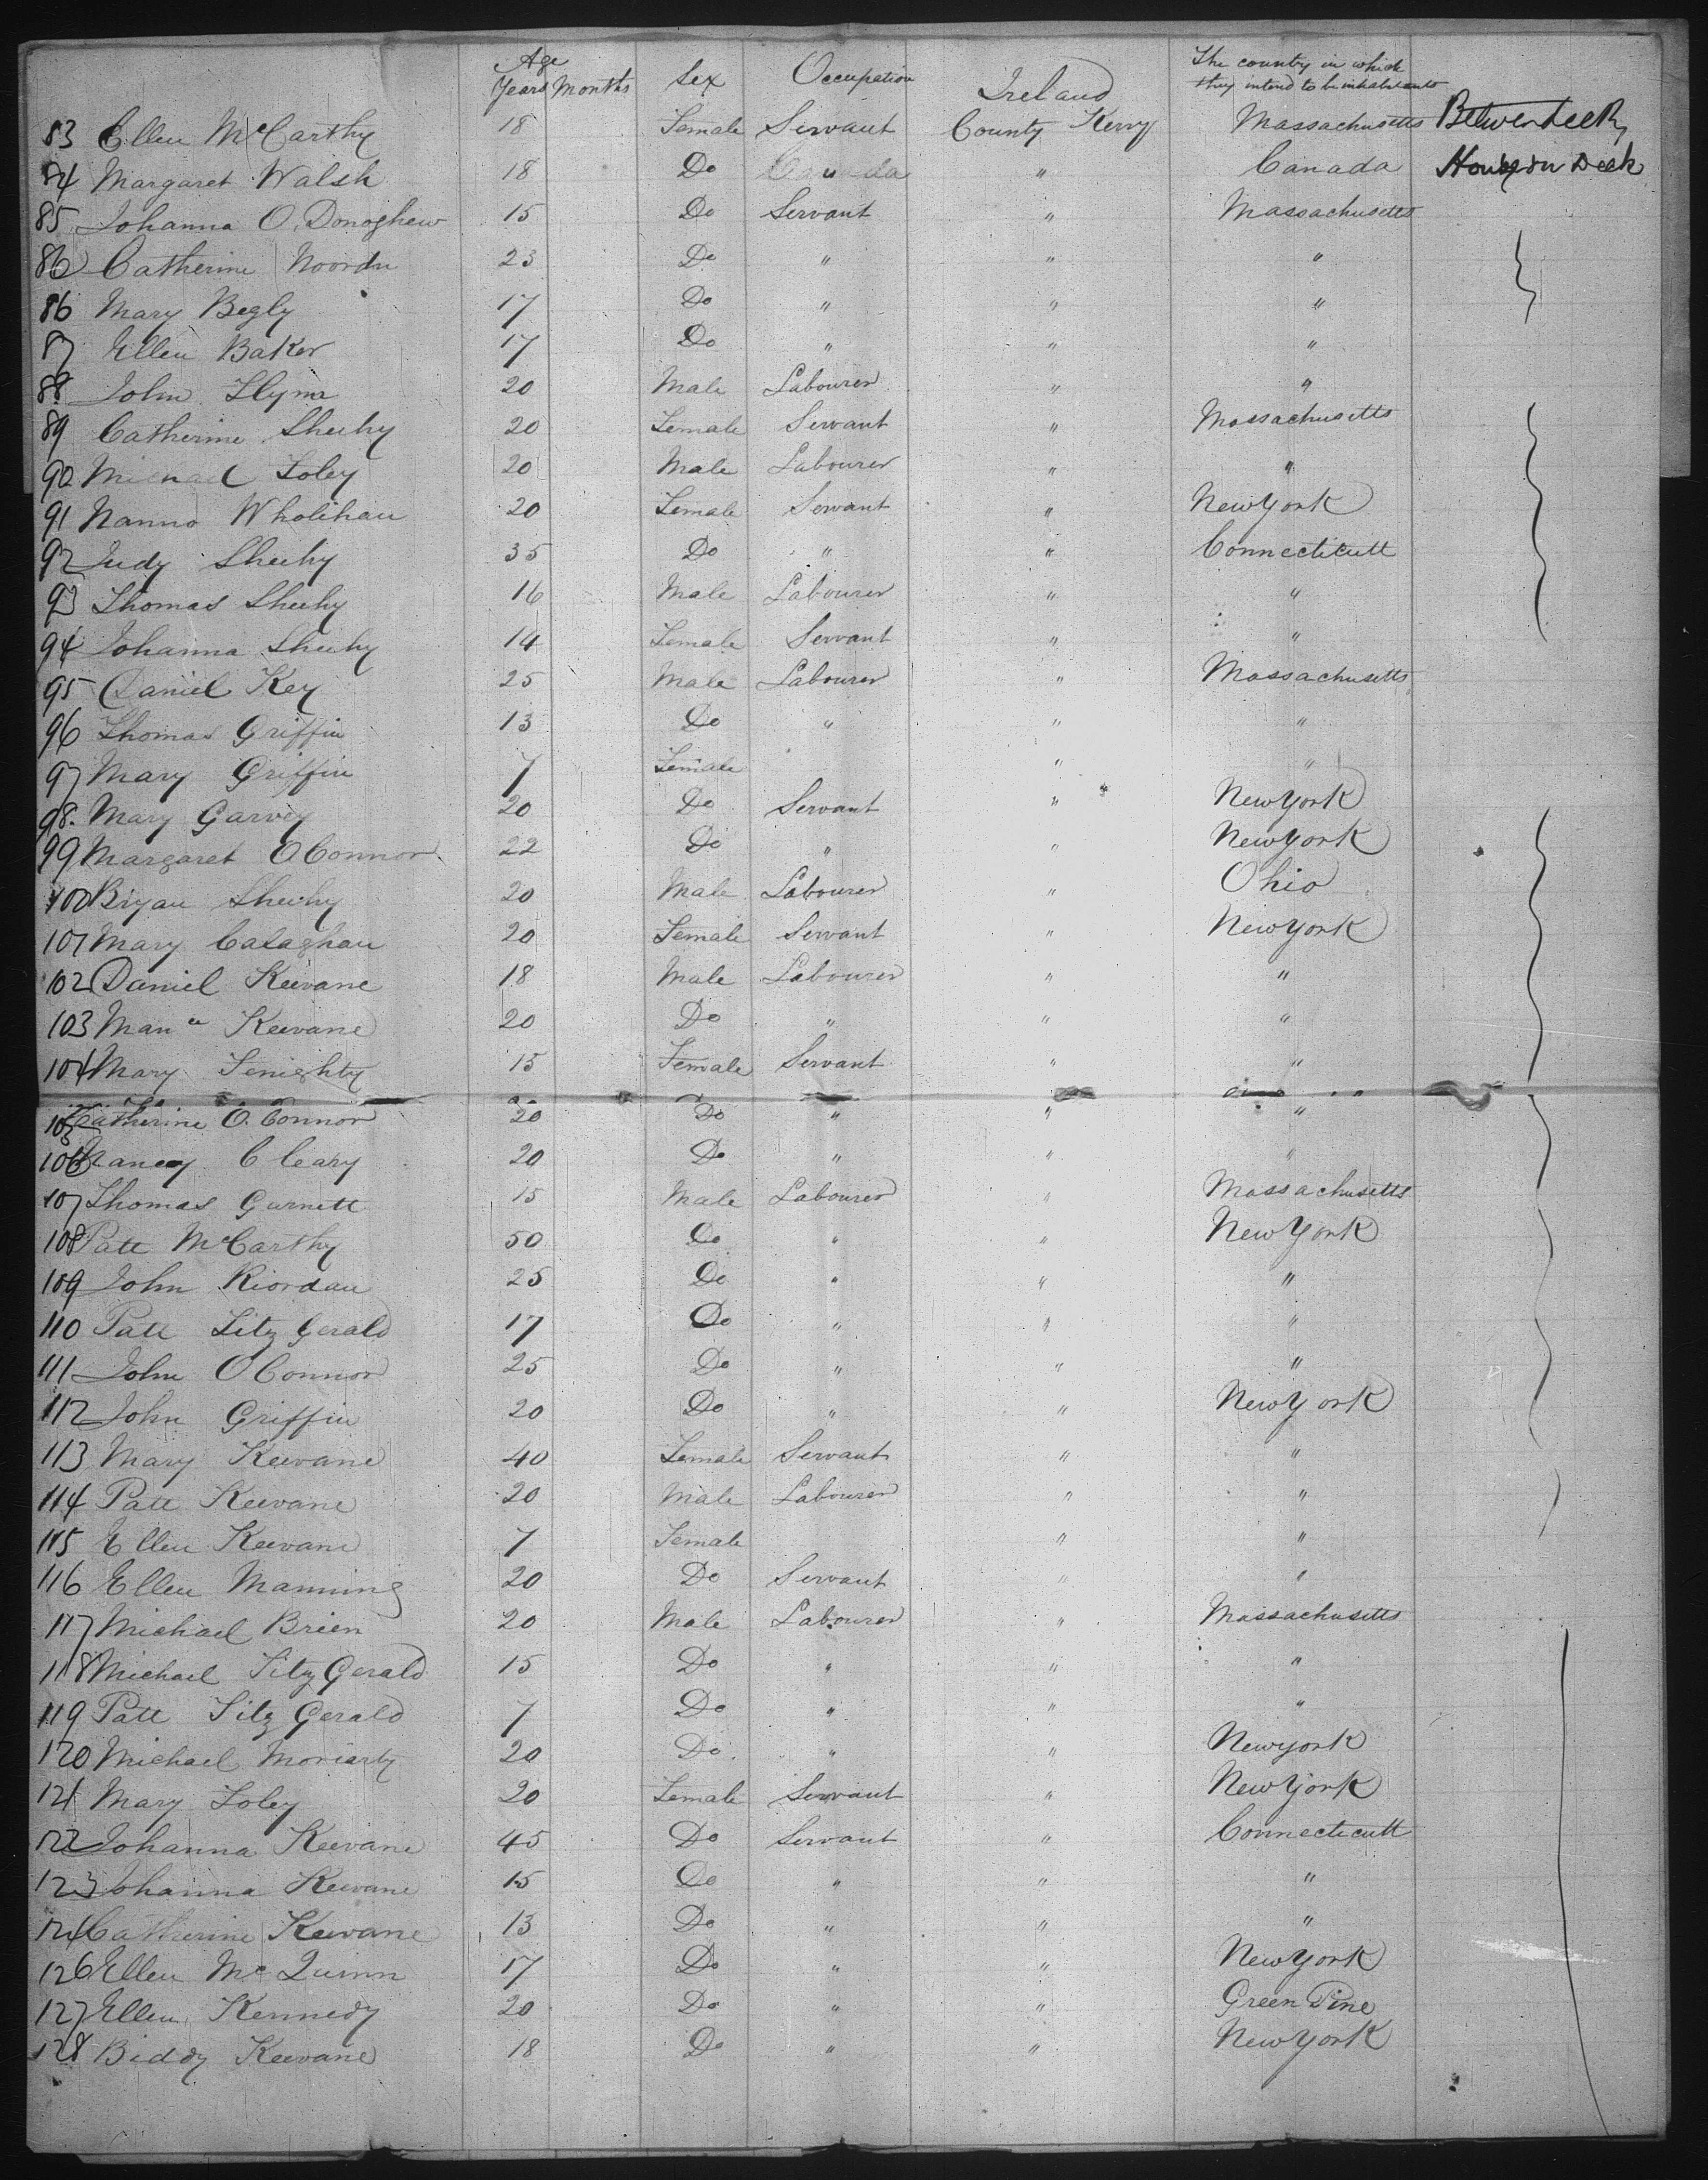 Age Years Months Sex Occupation Ireland The country in which they intend to be inhabitants
83 Ellen McCarthy 18 Female Servant County Kerry Massachusetts Between decks
84 Margaret Walsh 18 Do Canada " Canada House on Deck
85 Johanna O. Donoghew 15 Do Servant " Massachusetts
86 Catherine 23 Do " " "
86 Mary Begly 17 Do " " "
87 Ellen Baker 17 Do " " "
88 John 20 Male Labourer " "
89 Catherine Sheehy 20 Female Servant " Massachusetts
90 Michael Foley 20 Male Labourer " "
91 Nanno Wholihan 20 Female Servant " New York
92 Judy Sheehy 35 Do " " Connecticutt
93 Thomas Sheehy 16 Male Labourer " "
94 Johanna Sheehy 14 Female Servant " "
95 Daniel Key 25 Male Labourer " Massachusetts
96 Thomas Griffin 13 Do " " "
97 Mary Griffin 7 Female " "
98. Mary Garvey 20 Do Servant " New York
99 Margaret OConnor 22 Do " " New York
100 Bryan Sheehy 20 Male Labourer " Ohio
101 Mary Calaghan 20 Female Servant " New York
102 Daniel Keevane 18 Male Labourer " "
103 Keevane 20 Do " " "
104 Mary 15 Female Servant " "
105 Catherine O. Connor 20 Do " " "
106 Nancy Cleary 20 Do " " "
107 Thomas Gurnett 15 Male Labourer " Massachusetts
108 Patt McCarthy 50 Do " " New York
109 John Riordan 25 Do " " "
110 Patt Fitz Gerald 17 Do " " "
111 John OConnor 25 Do " " "
112 John Griffin 20 Do " " New York
113 Mary Keevane 40 Female Servant " "
114 Patt Keevane 20 Male Labourer " "
115 Ellen Keevane 7 Female " "
116 Ellen Manning 20 Do Servant " "
117 Michael Brien 20 Male Labourer " Massachusetts
118 Michael Fitz Gerald 15 Do " " "
119 Patt Fitz Gerald 7 Do " " "
120 Michael Moriarty 20 Do " " New york
121 Mary Foley 20 Female Servant " New York
122 Johanna Keevane 45 Do Servant " Connecticutt
123 Johanna Keevane 15 Do " " "
124 Catherine Keevane 13 Do " " "
126 Ellen Mc Quinn 17 Do " " New York
127 Ellen Kennedy 20 Do " " Green Pine
128 Biddy Keevane 18 Do " " New York